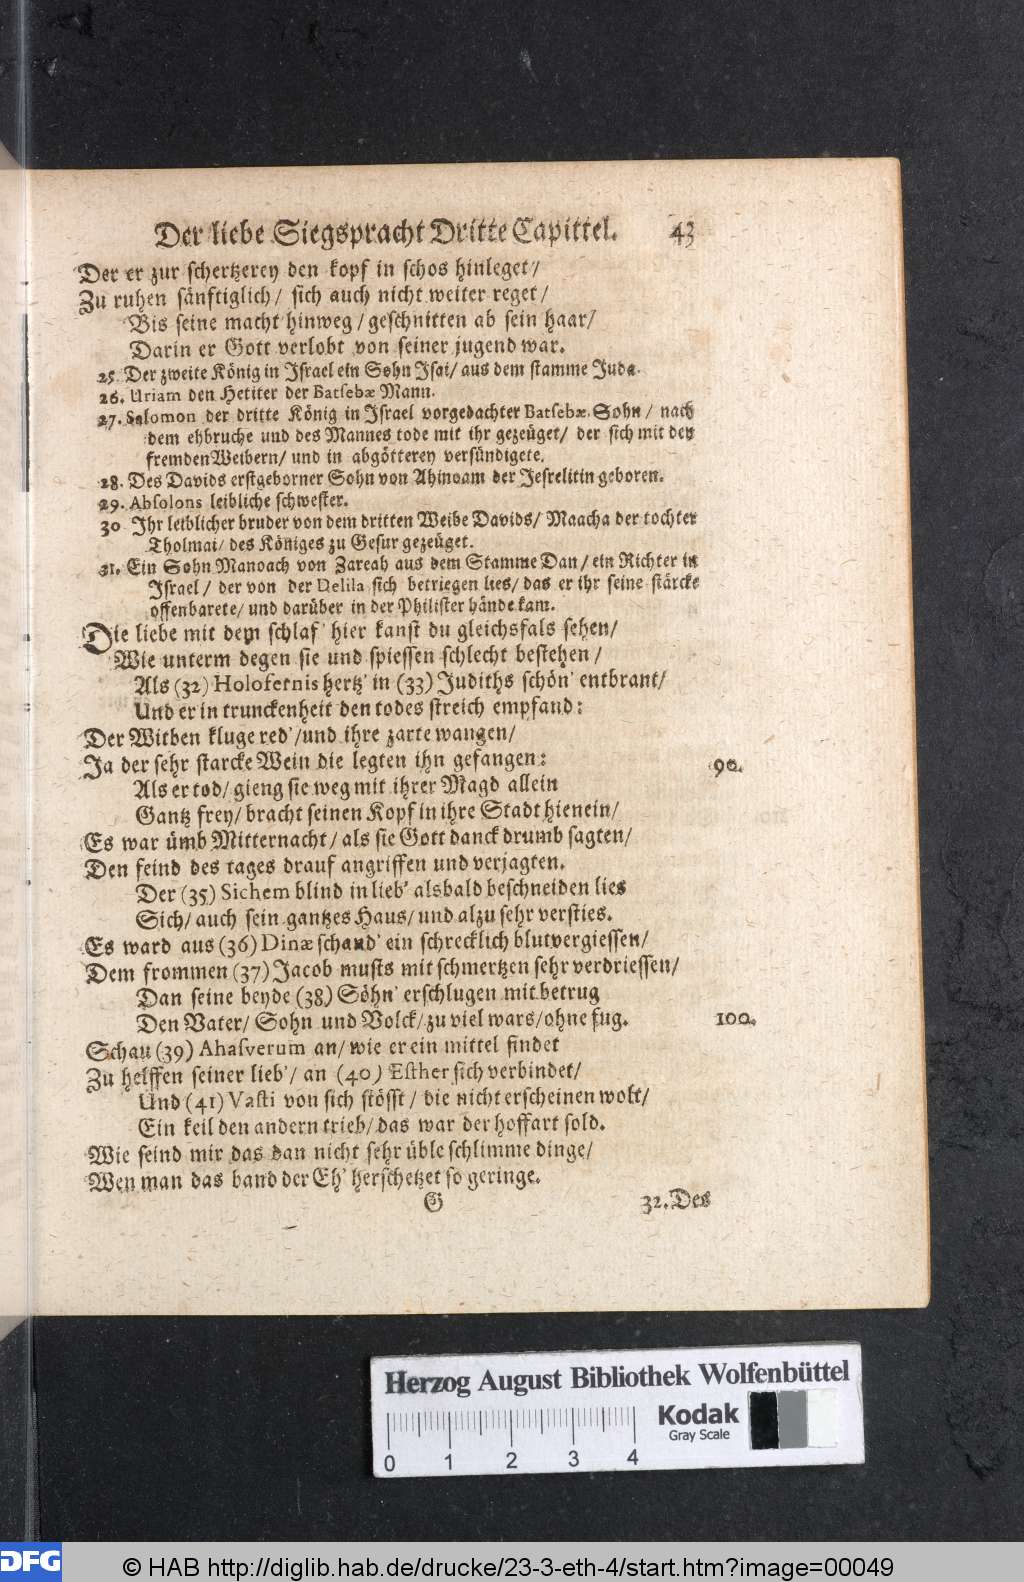 Der liebe Siegspracht Dritte Capittel. 43
Der er zur schertzerey den kopf in schos hinleget/
Zu ruhen sänftiglich/ sich auch nicht weiter reget/
Bis seine macht hinweg/ geschnitten ab sein haar/
Darin er Gott verlobt von seiner jugend war.
25. Der zweite König in Israel ein Sohn Isai/ aus dem stamme Juda.
26. Uriam den Hetiter der Batsebæ Mann.
27. Salomon der dritte König in Israel vorgedachter Batsebæ Sohn/ nach
dem ehbruche und des Mannes tode mit ihr gezeüget/ der sich mit den
fremden Weibern/ und in abgötterey versündigete.
28. Des Davids erstgeborner Sohn von Ahinoam der Jesrelitin geboren.
29. Absolons leibliche schwester.
30 Ihr leiblicher bruder von dem dritten Weibe Davids/ Maacha der tochter
Tholmai/ des Königes zu Gesur gezeüget.
31. Ein Sohn Manoach von Zareah aus dem Stamme Dan/ ein Richter in
Israel/ der von der Delila sich betriegen lies/ das er ihr seine stärcke
offenbarete/ und darüber in der Philister hände kam.
Die liebe mit dem schlaf' hier kanst du gleichsfals sehen/
Wie unterm degen sie und spiessen schlecht bestehen/
Als (32) Holofernis hertz' in (33) Judiths schön' entbrant/
Und er in trunckenheit den todes streich empfand:
Der Witben kluge red'/ und ihre zarte wangen/
Ja der sehr starcke Wein die legten ihn gefangen: 90.
Als er tod/ gieng sie weg mit ihrer Magd allein
Gantz frey/ bracht seinen Kopf in ihre Stadt hienein/
Es war ümb Mitternacht/ als sie Gott danck drumb sagten/
Den feind des tages drauf angriffen und verjagten.
Der (35) Sichem blind in lieb' alsbald beschneiden lies
Sich/ auch sein gantzes Haus/ und alzu sehr versties.
Es ward aus (36) Dinæ schand' ein schrecklich blutvergiessen/
Dem frommen (37) Jacob musts mit schmertzen sehr verdriessen/
Dan seine beyde (38) Söhn' erschlugen mit betrug
Den Vater/ Sohn und Volck/ zu viel wars/ ohne fug. 100.
Schau (39) Ahasverum an/ wie er ein mittel findet
Zu helffen seiner lieb'/ an (40) Esther sich verbindet/
Und (41) Vasti von sich stösst/ die nicht erscheinen wolt/
Ein keil den andern trieb/ das war der hoffart sold.
Wie seind mir das dan nicht sehr üble schlimme dinge/
Wen man das band der Eh' herschetzet so geringe.
G 32. Des
Herzog August Bibliothek Wolfenbüttel
0 1 2 3 4
Kodak
Gray Scale
DFG
© HAB http://diglib.hab.de/drucke/23-3-eth-4/start.htm?image=00049